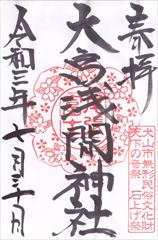 奉拝
大宮浅間神社
令和三年七月三十日
犬山市無形民俗文化財
天下の奇祭 石上げ祭